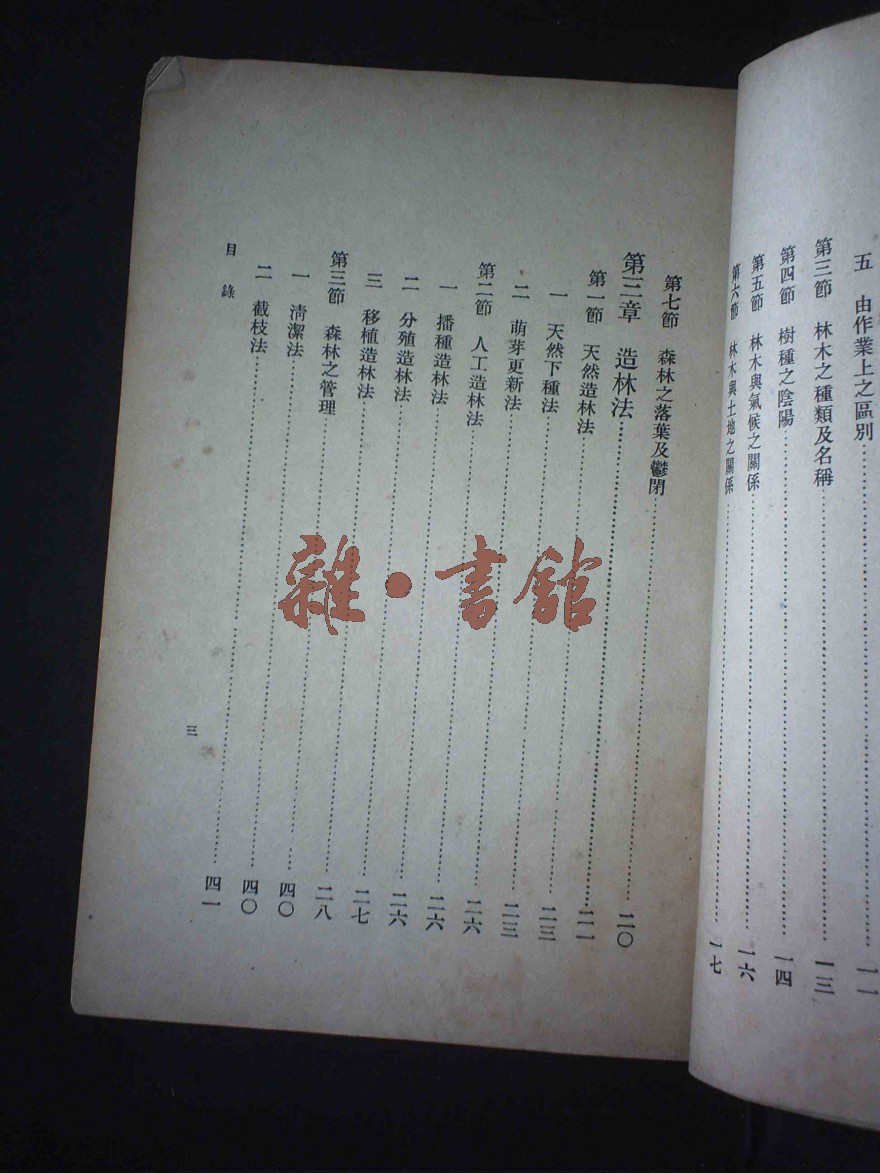 五 由作業上之區別……一一
第三節 林木之種類及名稱……一三
第四節 樹種之陰陽……一四
第五節 林木與氣候之關係……一六
第六節 林木與土地之關係……一七
第七節 森林之落葉及鬱閉……二〇
第三章 造林法……二一
第一節 天然造林法……二三
一 天然下種法……二三
二 萌芽更新法……二六
第二節 人工造林法……二六
一 播種造林法……二六
二 分殖造林法……二七
三 移植造林法……二八
第三節 森林之管理……四〇
一 清潔法……四〇
二 截枝法……四一
目錄
三
雜·書館